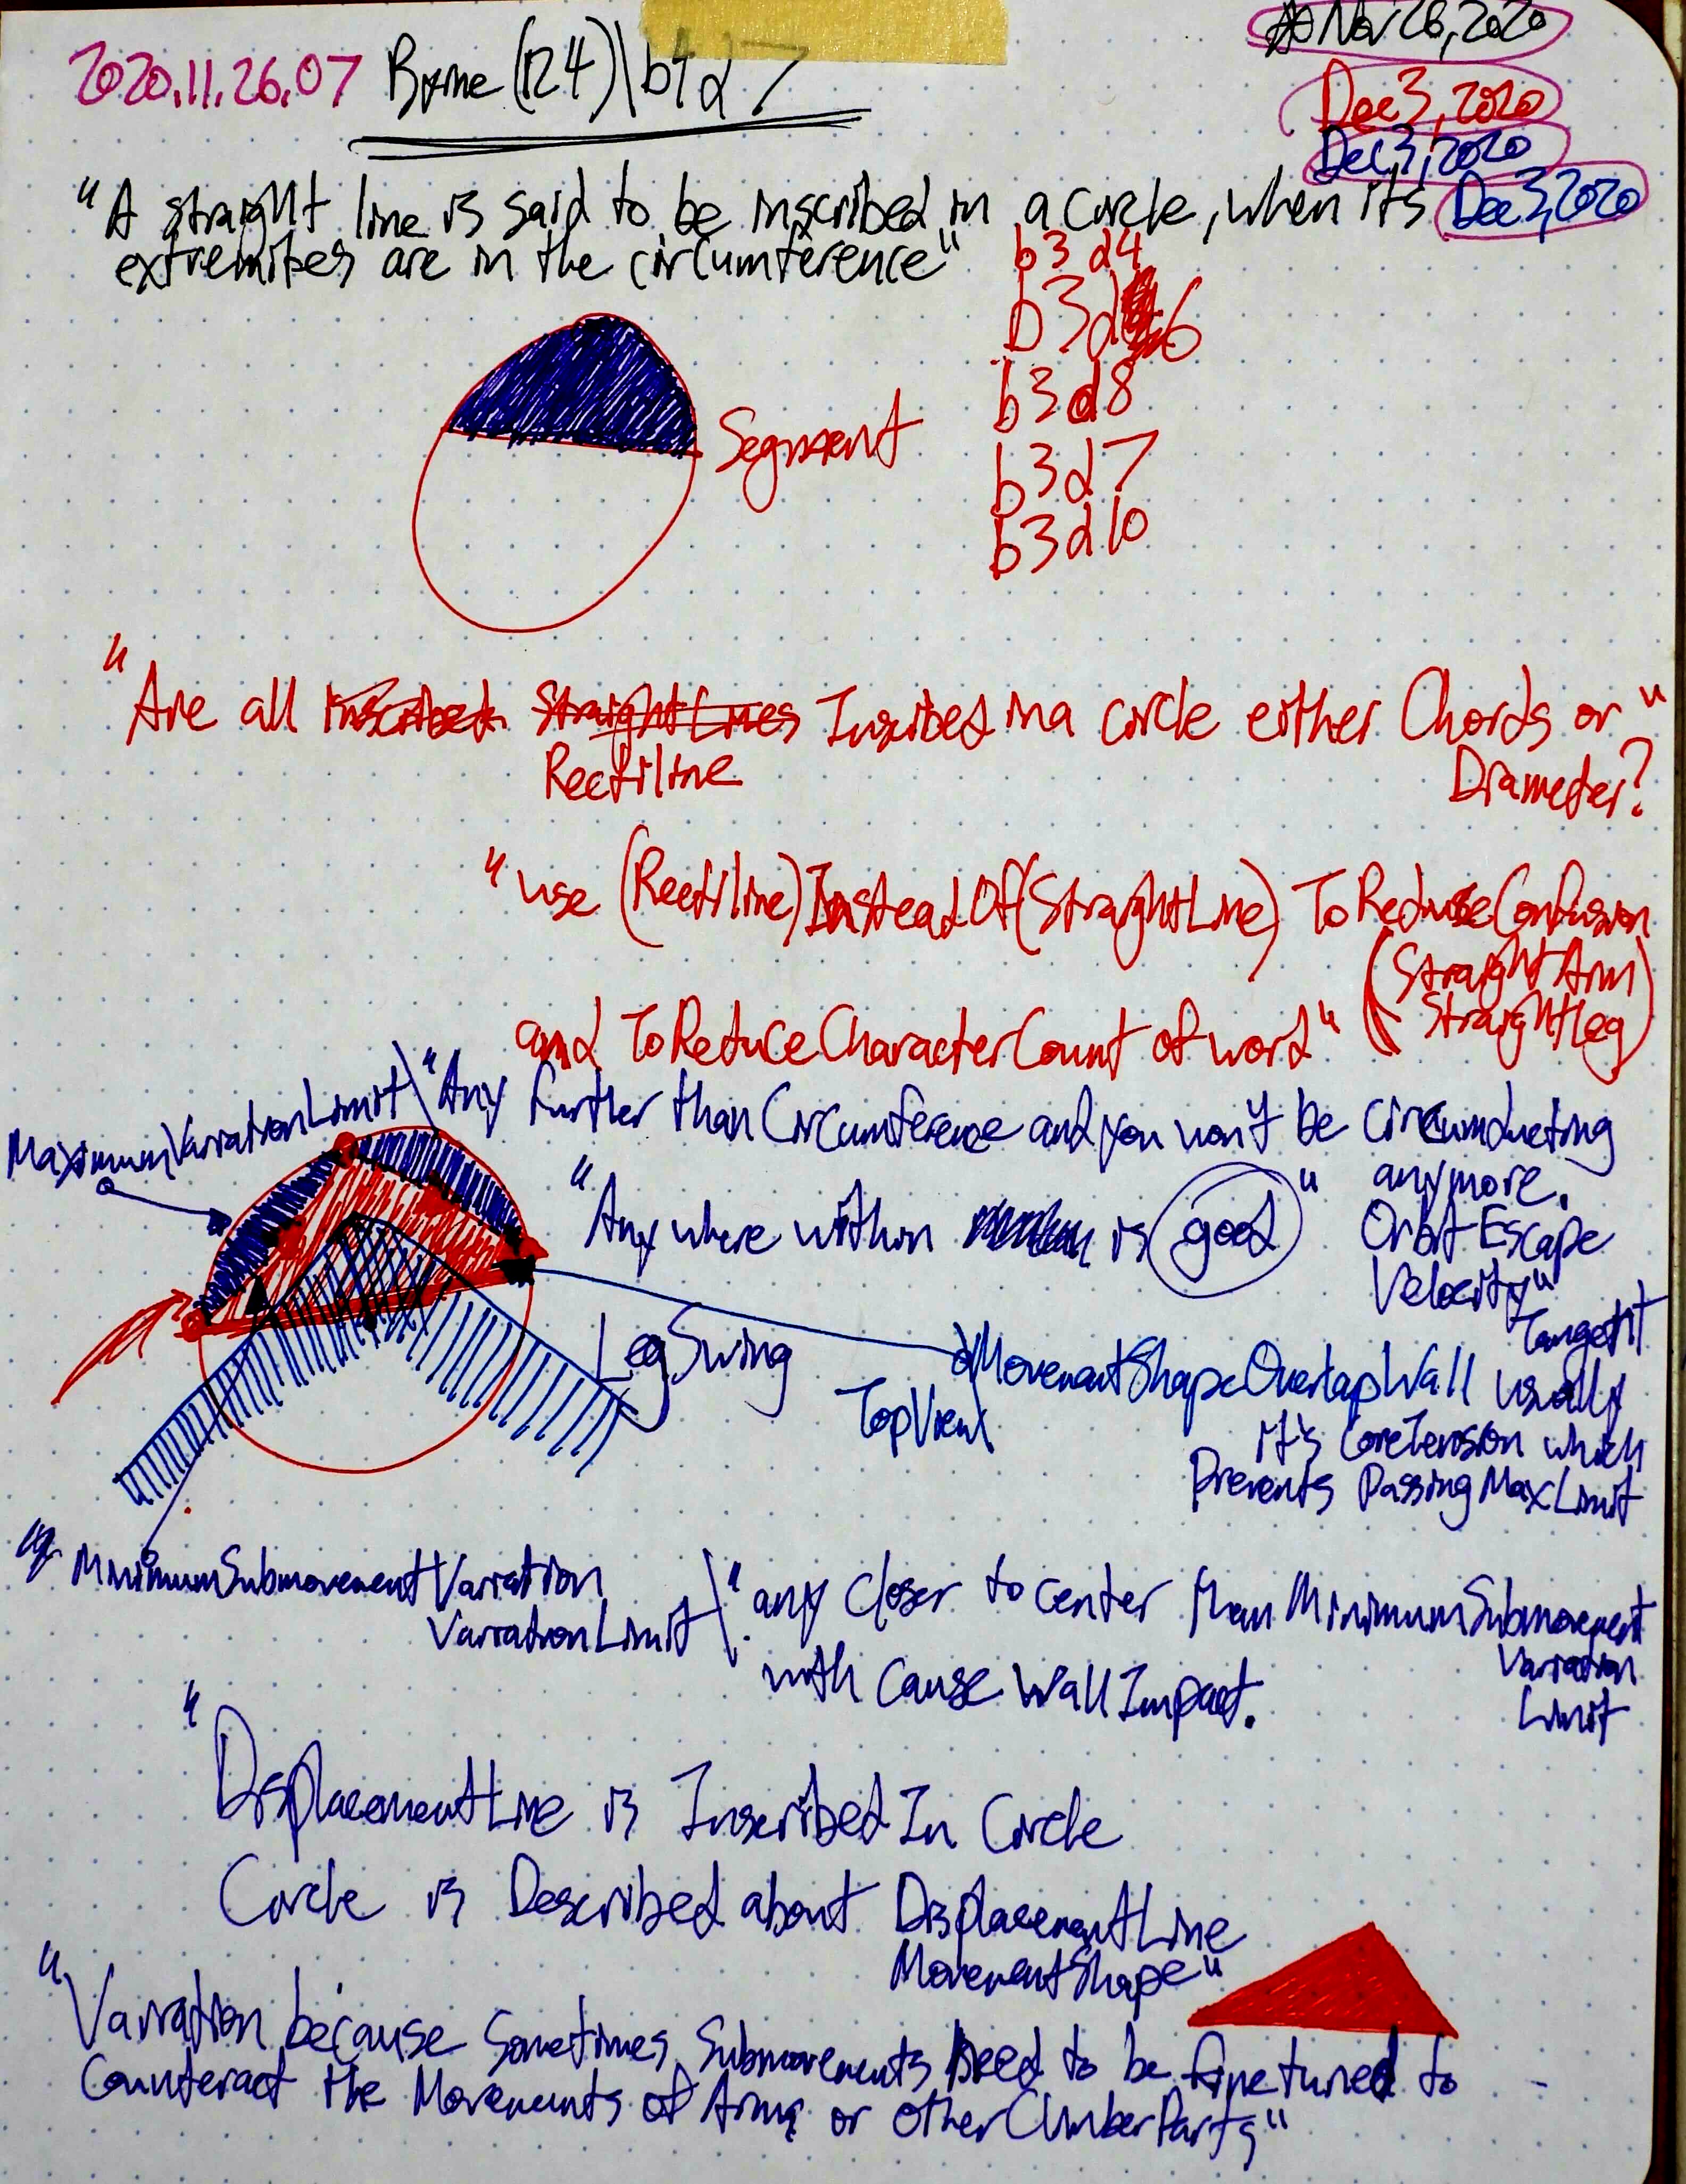 Nov 26, 2020
2020.11.26.07 Byrne (124)\b4d7
Dec 3, 2020
Dec 3, 2020
"A straight line is said to be inscribed in a circle, when its Dec 3, 2020
extremities are in the circumference"
b3 d4
b3d6
b3d8
Segment
b3d7
b3d10
"Are all Inscribed Straight Lines Inscribed in a circle either Chords or"
Rectiline
Diameter?
"use (Rectiline)InsteadOf(StraightLine) ToReduceConfusion
(StraightArm
StraightLeg)
and ToReduceCharacterCount of word"
MaximumVariationLimit\"Any further than Circumference and you won't be circumducting
anymore.
"Anywhere within is good"
Orbit Escape
Velocity"
Tangent
LegSwing
MovementShapeOverlapWall usually
TopView
it's CoreTension which
Prevents PassingMaxLimit
MinimumSubmovementVariation
VariationLimit\"any closer to center than MinimumSubmovement
Variation
Limit
with cause WallImpact.
"DisplacementLine is Inscribed In Circle
Circle is Described about DisplacementLine
MovementShape"
"Variation because Sometimes Submovements need to be finetuned to
Counteract the Movements of Arms or otherClimberParts"